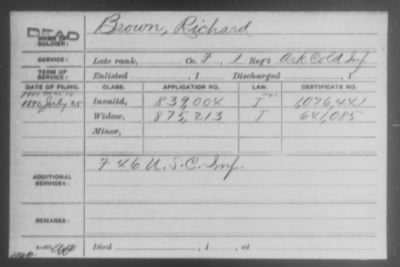 DEAD
NAME OF SOLDIER: Brown, Richard
SERVICE: Late rank, Co. F, 1 Reg't Ark Cold Inf
TERM OF SERVICE: Enlisted , 1 Discharged , 1
DATE OF FILING. CLASS. APPLICATION NO. LAW. CERTIFICATE NO.
1890 July 25 Invalid, 839,004 I 1,076,441
Widow, 875,213 I 641,085
Minor,
ADDITIONAL SERVICES: F 46 U.S.C. Inf.
REMARKS:
Died , 1 , at